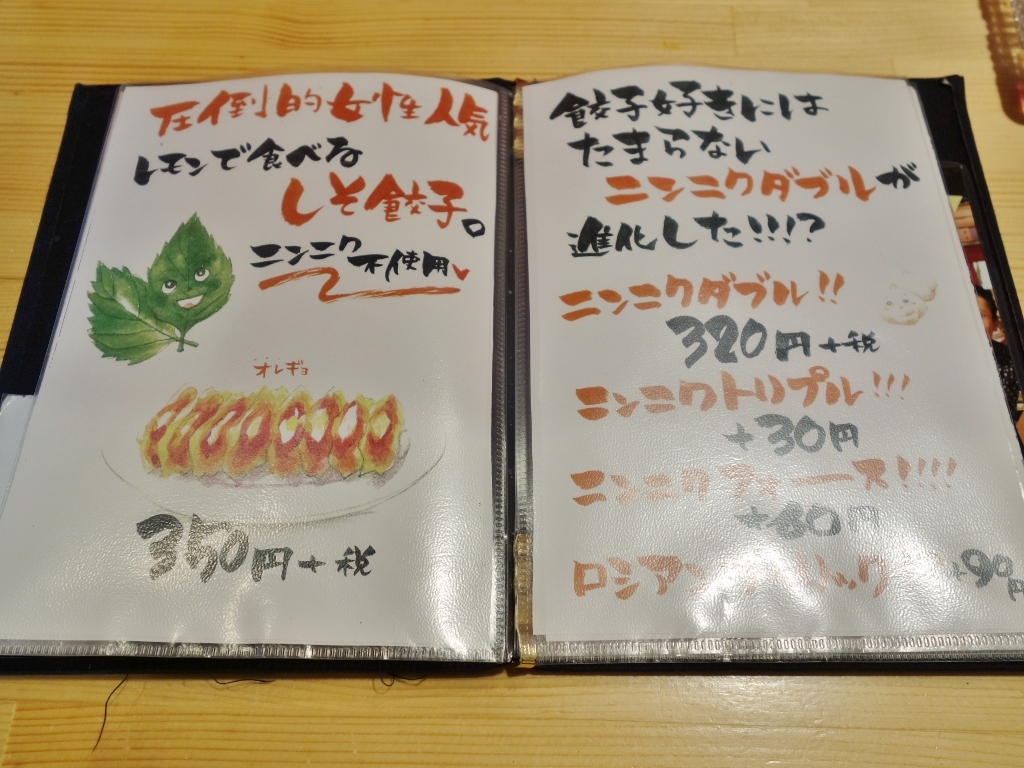 圧倒的女性人気
レモンで食べる
しそ餃子。
ニンニク不使用
オレギョ
350円+税
餃子好きには
たまらない
ニンニクダブルが
進化した!!!?
ニンニクダブル!!
320円+税
ニンニクトリプル!!!
+30円
ニンニクフォース!!!!
+60円
ロシアンガーリック +90円